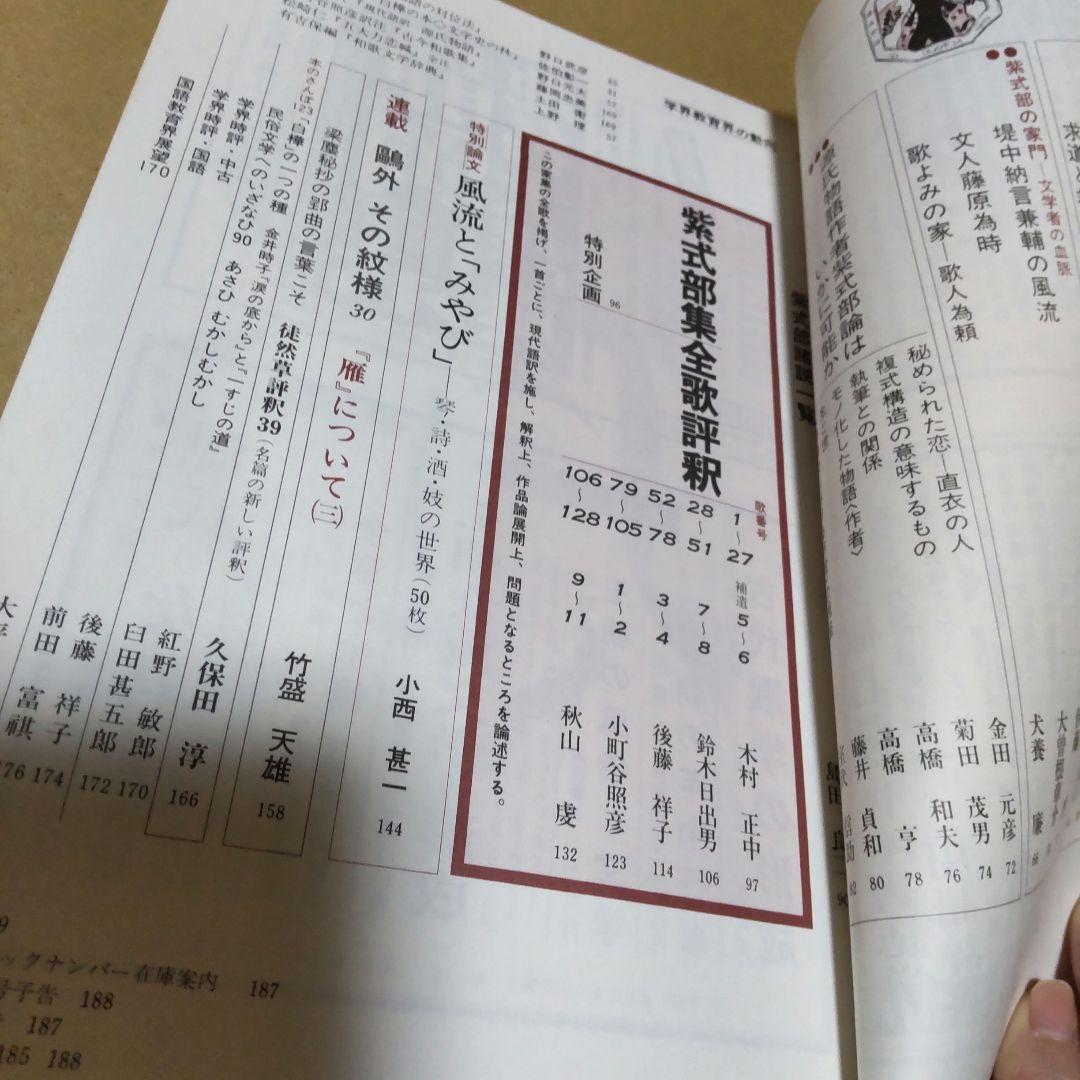 堤中納言兼輔の風流
●●紫式部の家門―文学者の血脈
文人藤原為時
歌よみの家―歌人為頼
犬養 廉 66
秘められた恋―直衣の人
金田 元彦 72
複式構造の意味するもの
菊田 茂男 74
執筆との関係
高橋 和夫 76
モノ化した物語〈作者〉
高橋 亨 78
藤井 貞和 80
源氏物語作者紫式部論はいかに可能か
学界教育界の動向
紫式部集全歌評釈
特別企画 96
この家集の全歌を掲げ、一首ごとに、現代語訳を施し、解釈上、作品論展開上、問題となるところを論述する。
歌番号
1~27 補遺5~6 木村 正中 97
28~51 7~8 鈴木日出男 106
52~78 3~4 後藤 祥子 114
79~105 1~2 小町谷照彦 123
106~128 9~11 秋山 虔 132
特別論文 風流と「みやび」―琴・詩・酒・妓の世界(50枚) 小西 甚一 144
連載 鷗外 その紋様 30 『雁』について(三) 竹盛 天雄 158
梁塵秘抄の郢曲の言葉こそ 徒然草評釈39(名篇の新しい評釈) 久保田 淳 166
本のさんぽ123「白樺」の一つの種 金井時子『涙の底から』と『一すじの道』 紅野 敏郎 170
民俗文学へのいざない90 あさひ むかしむかし 臼田甚五郎 172
学界時評・中古 後藤 祥子 174
学界時評・国語 前田 富祺 176
国語教育界展望170
『現代語訳 源氏物語』
有吉保編『和歌文学辞典』
ックナンバー在庫案内 187
号予告 188
187
185 188